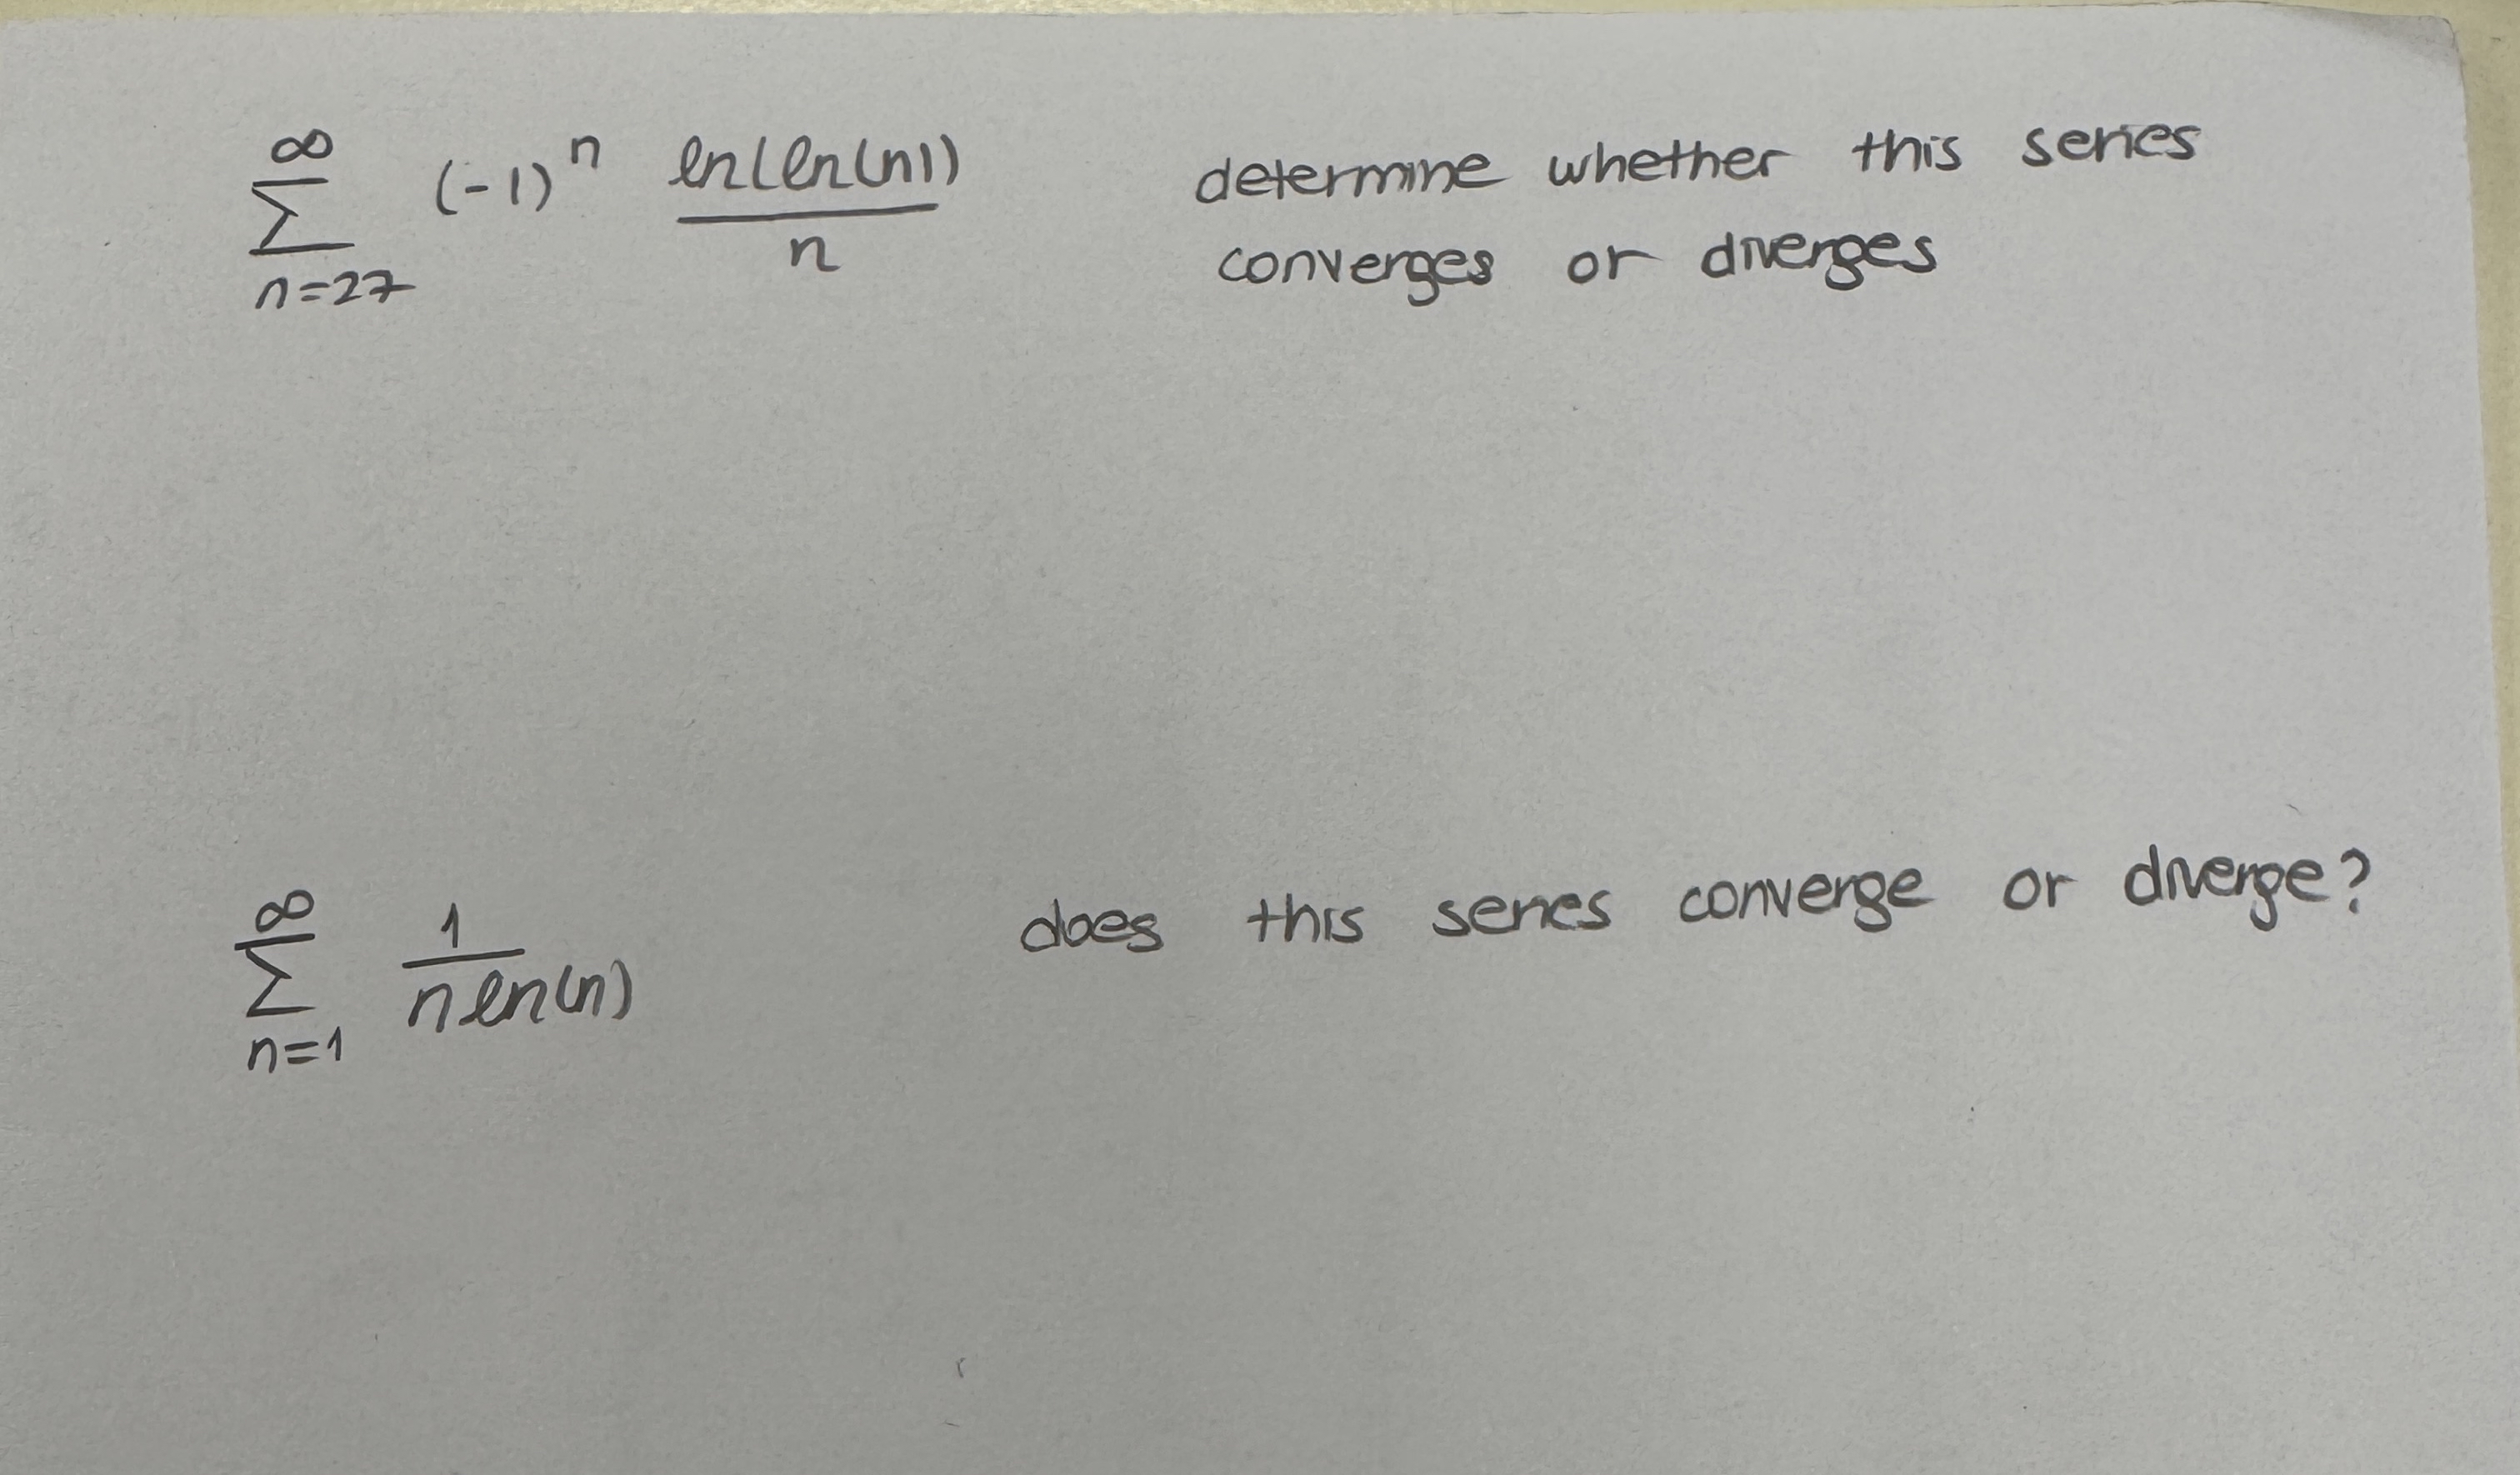 ∞
∑ (-1)^n ln(ln(n)) / n determine whether this series
n=27 converges or diverges
∞
∑ 1 / n ln(n) does this series converge or diverge?
n=1